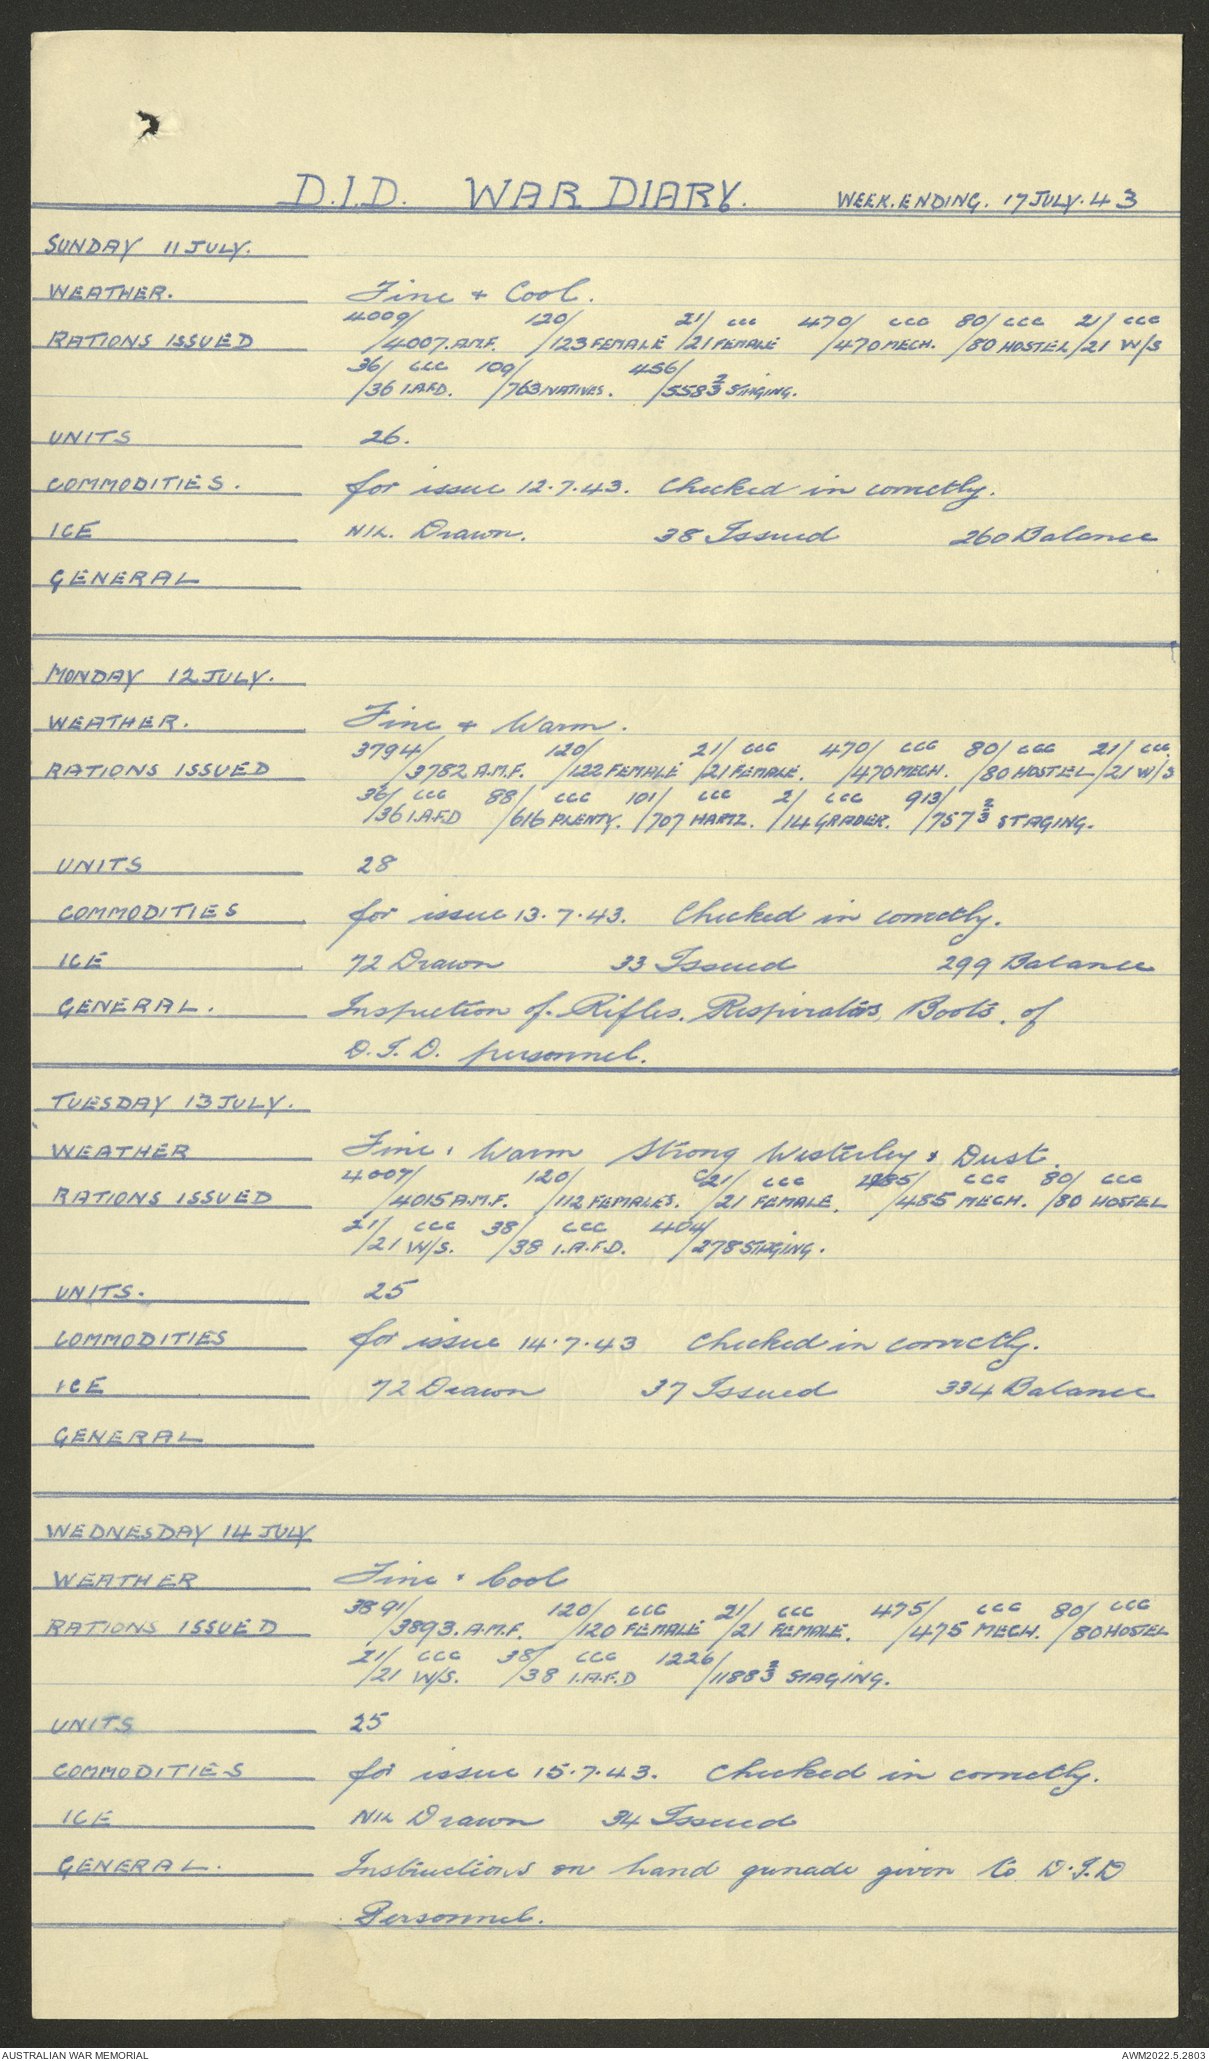 D.I.D. WAR DIARY. WEEK.ENDING. 17 JULY.43
SUNDAY 11 JULY.
WEATHER. Fine + Cool.
4009/ 120/ 21/ CCC 470/ CCC 80/ CCC 21/ CCC
RATIONS ISSUED /4007.A.M.F. /123 FEMALE /21 FEMALE /470 MECH. /80 HOSTEL /21 W/S
36/ CCC 109/ 456/
/36 I.A.F.D. /763 NATIVES. /558 2/3 STAGING.
UNITS 26.
COMMODITIES. for issue 12.7.43. Checked in correctly.
ICE NIL. Drawn. 38 Issued 260 Balance
GENERAL
MONDAY 12 JULY.
WEATHER. Fine + Warm.
3794/ 120/ 21/ CCC 470/ CCC 80/ CCC 21/ CCC.
RATIONS ISSUED /3782 A.M.F. /122 FEMALE /21 FEMALE. /470 MECH. /80 HOSTEL /21 W/S
36/ CCC 88/ CCC 101/ CCC 2/ CCC 913/
/36 I.A.F.D /616 PLENTY. /707 HARTZ. /14 GRADER. /757 2/3 STAGING.
UNITS 28
COMMODITIES for issue 13.7.43. Checked in correctly.
ICE 72 Drawn 33 Issued 299 Balance
GENERAL. Inspection of Rifles. Respirators, Boots. of
D.I.D. personnel.
TUESDAY 13 JULY.
WEATHER Fine + Warm Strong Westerley + Dust.
4007/ 120/ 21/ CCC 485/ CCC 80/ CCC
RATIONS ISSUED /4015 A.M.F. /112 FEMALES. /21 FEMALE. /485 MECH. /80 HOSTEL
21/ CCC 38/ CCC 404/
/21 W/S. /38 I.A.F.D. /278 STAGING.
UNITS. 25
COMMODITIES for issue 14.7.43 Checked in correctly.
ICE 72 Drawn 37 Issued 334 Balance
GENERAL
WEDNESDAY 14 JULY
WEATHER Fine + Cool
3891/ 120/ CCC 21/ CCC 475/ CCC 80/ CCC
RATIONS ISSUED /3893. A.M.F. /120 FEMALE /21 FEMALE. /475 MECH. /80 HOSTEL
21/ CCC 38/ CCC 1226/
/21 W/S. /38 I.A.F.D /1188 2/3 STAGING.
UNITS 25
COMMODITIES for issue 15.7.43. Checked in correctly.
ICE NIL Drawn 34 Issued
GENERAL. Instructions on hand grenade given to D.I.D
Personnel.
AUSTRALIAN WAR MEMORIAL AWM2022.5.2803